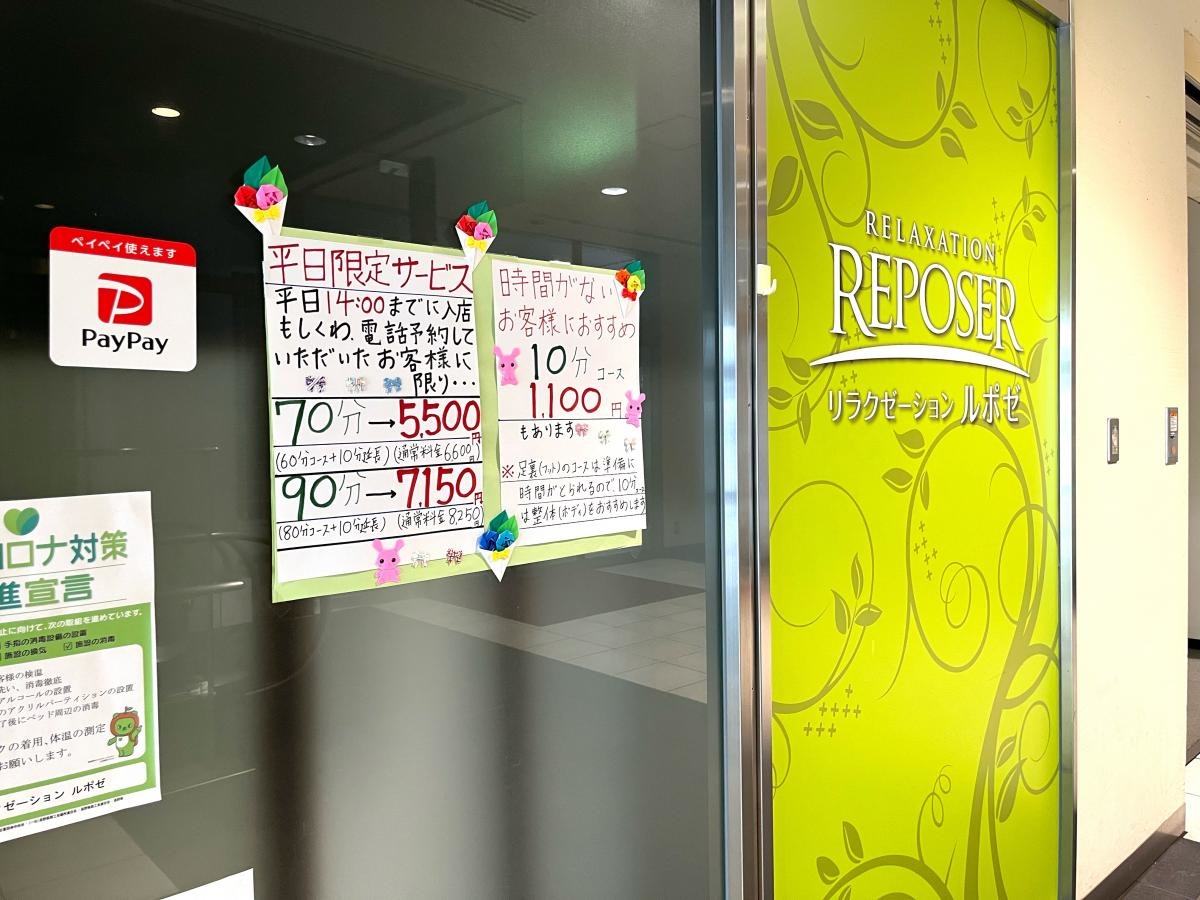 ペイペイ使えます
PayPay
平日限定サービス
平日14:00までに入店
もしくわ、電話予約して
いただいたお客様に
限り・・・
70分→5,500円
(60分コース+10分延長)(通常料金6,600円)
90分→7,150円
(80分コース+10分延長)(通常料金8,250円)
時間がない
お客様におすすめ
10分コース
1,100円
もあります
※足裏(フット)のコースは準備に
時間がとられるので10分コース
は整体(ボディ)をおすすめします
RELAXATION
REPOSER
リラクゼーション ルポゼ
コロナ対策
進宣言
止に向けて、次の取組を進めています。
手指の消毒設備の設置
施設の換気 ☑ 施設の消毒
客様の検温
洗い、消毒徹底
アルコールの設置
のアクリルパーティションの設置
了後にベッド周辺の消毒
クの着用、体温の測定
お願いします。
ゼーション ルポゼ